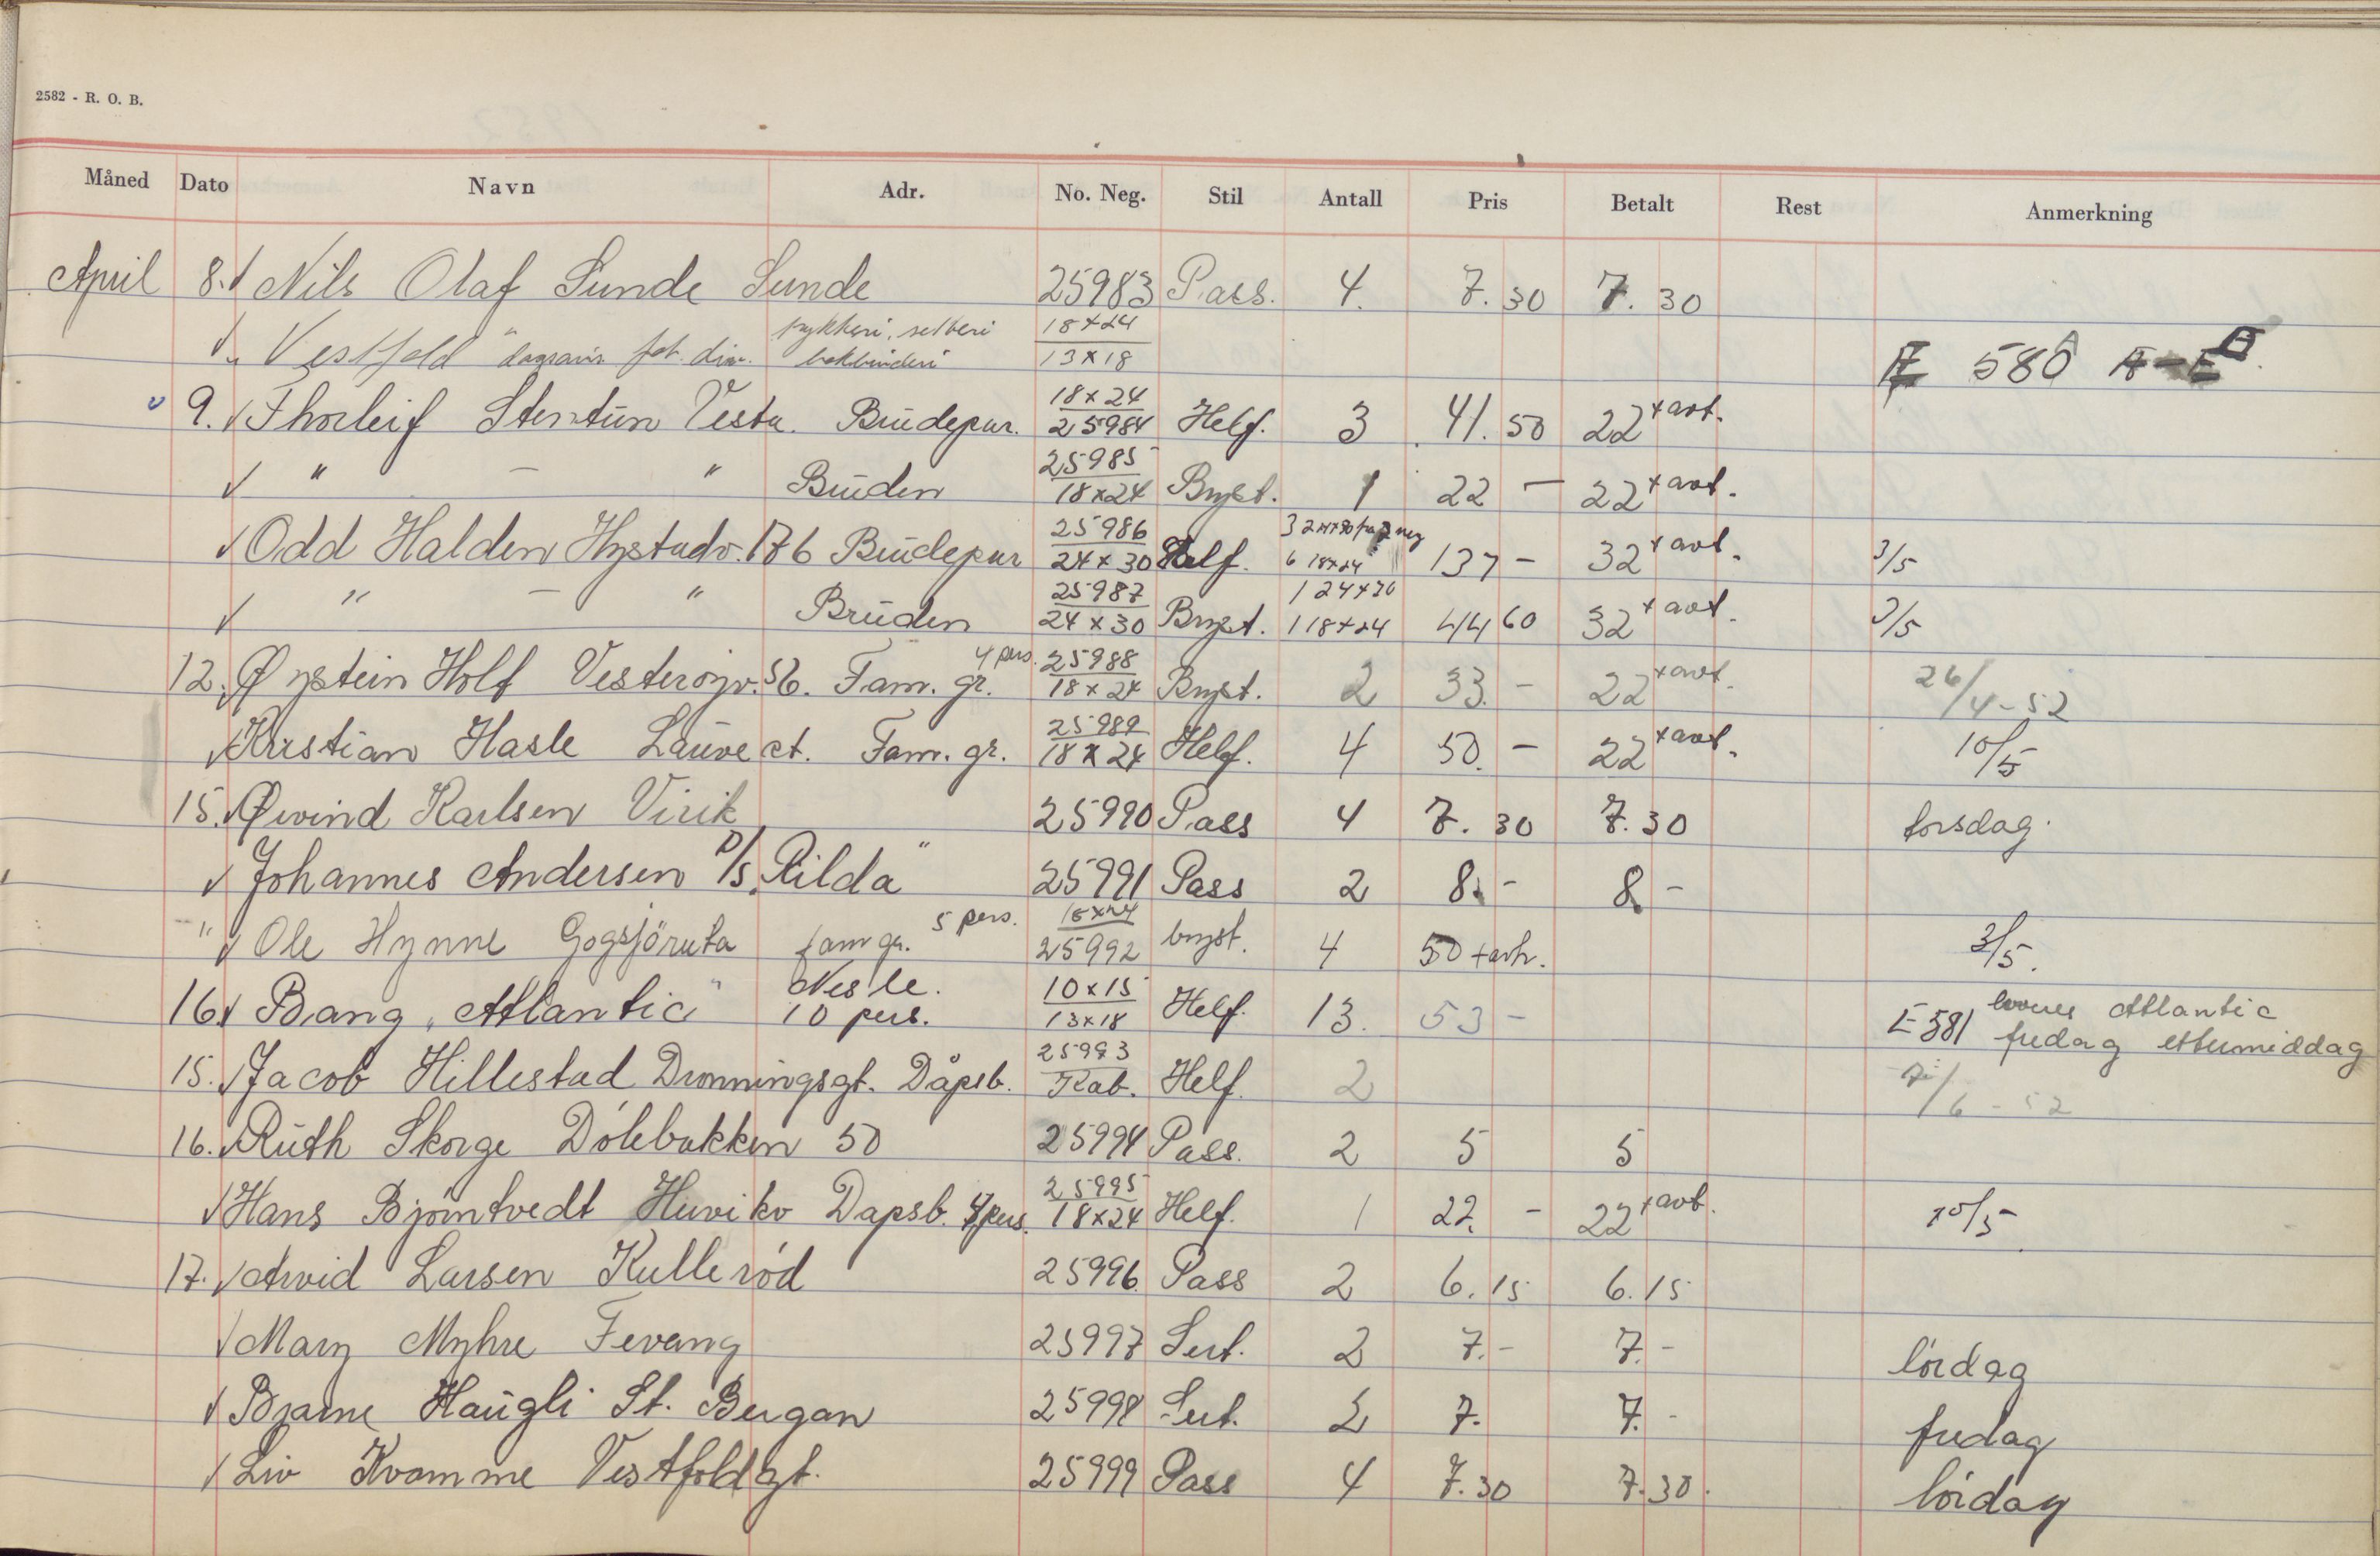 2582 - R. O. B.
Måned Dato Navn Adr. No. Neg. Stil Antall Pris Betalt Rest Anmerkning
April 8. Nils Olaf Sunde Sunde 25983 Pass. 4. 7. 30 7. 30
"Vestfold" fot. div. trykkeri, setteri bokbinderi 18x24 13x18 580
9. Thorleif Stentun Vesta. Brudepar. 18x24 25984 Helf. 3 41. 50 22 + avt.
" — " Bruden 25985 18x24 Bryst. 1 22 — 22 + avt.
Odd Halden Hystadv. 176 Brudepar 25986 24x30 Helf. 6 18x24 137 — 32 + avt. 3/5
" — " Bruden 25987 24x30 Bryst. 1 24x30 1 18x24 44 60 32 + avt. 3/5
12. Øystein Holt Vesterøyv. 56. Fam. gr. 4 pers. 25988 18x24 Bryst. 2 33. — 22 + avt. 26/4-52
Kristian Hasle Lauve st. Fam. gr. 25989 18x24 Helf. 4 50. — 22 + avt. 10/5
15. Øivind Karlsen Virik 25990 Pass 4 7. 30 7. 30 torsdag.
Johannes Andersen D/S "Pilda" 25991 Pass 2 8. - 8 -
" Ole Hynne Gogsjöruta fam gr. 5 pers. 18x24 25992 bryst. 4 50 + arb. 3/5.
16. Bang "Atlantic" Nesle. 10 pers. 10x15 13x18 Helf. 13. 53 - E 581 Atlantic fredag ettermiddag
15. Jacob Hillestad Dronningsgt. Dåpsb. 25993 Kab. Helf. 2 /6 - 52
16. Ruth Skorge Dölebakken 50 25994 Pass. 2 5 5
Hans Bjørntvedt Huvikv Dapsb. 4 pers. 25995 18x24 Helf. 1 22. - 22 + avt. 10/5
17. Arvid Larsen Kullerød 25996 Pass 2 6. 15 6. 15
Mary Myhre Fevang 25997 Sert. 2 7. - 7. - lördag
Bjarne Haugli St. Bergan 25998 Sert. 2 7. 7. - fredag
Liv Kvamme Vestfoldgt. 25999 Pass 4 7. 30 7. 30. lördag